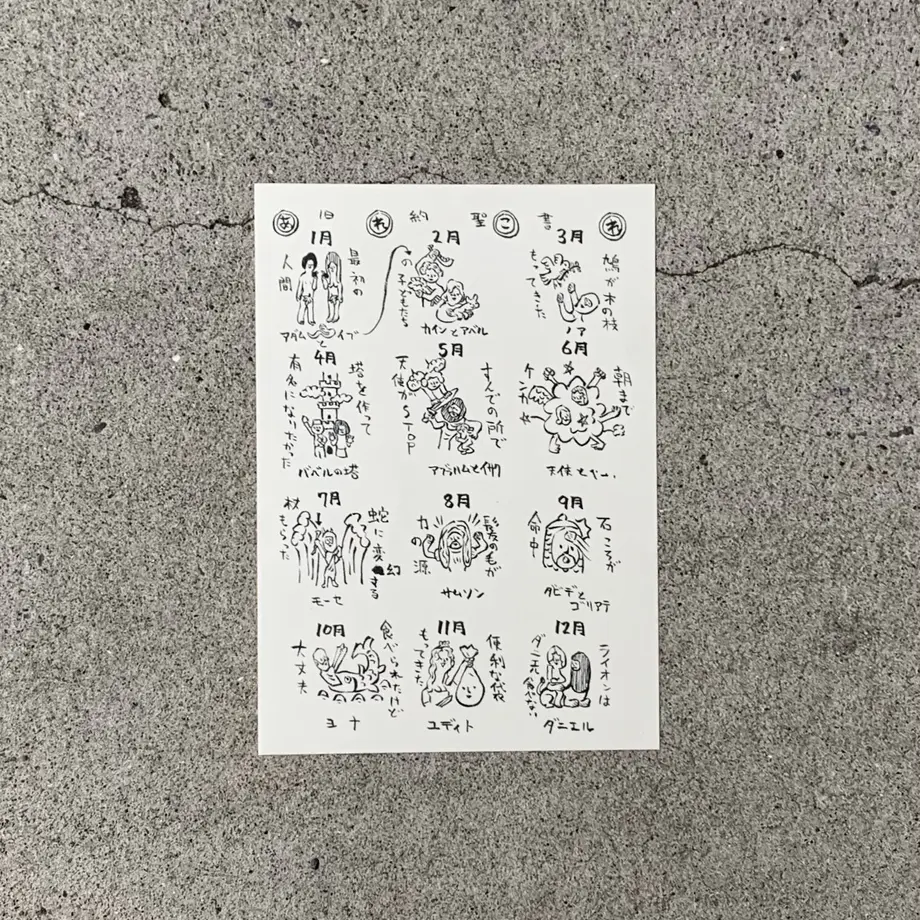 あ 旧 れ 約 聖 こ 書 れ
1月
最初の
人間
アダムとイブ
2月
の子どもたち
カインとアベル
3月
鳩が木の枝
もってきた
ノア
4月
塔を作って
有名になりたかった
バベルの塔
5月
すんでの所で
天使がSTOP
アブラハムと
6月
朝まで
ケンカ
天使とヤー
7月
蛇に変幻する
杖もらった
モーセ
8月
髪の毛が
力の源
サムソン
9月
石ころが
命中
ダビデと
ゴリアテ
10月
食べられたけど
大丈夫
ヨナ
11月
便利な袋
もってきた
ユディト
12月
ライオンは
ダニ元食べない
ダニエル